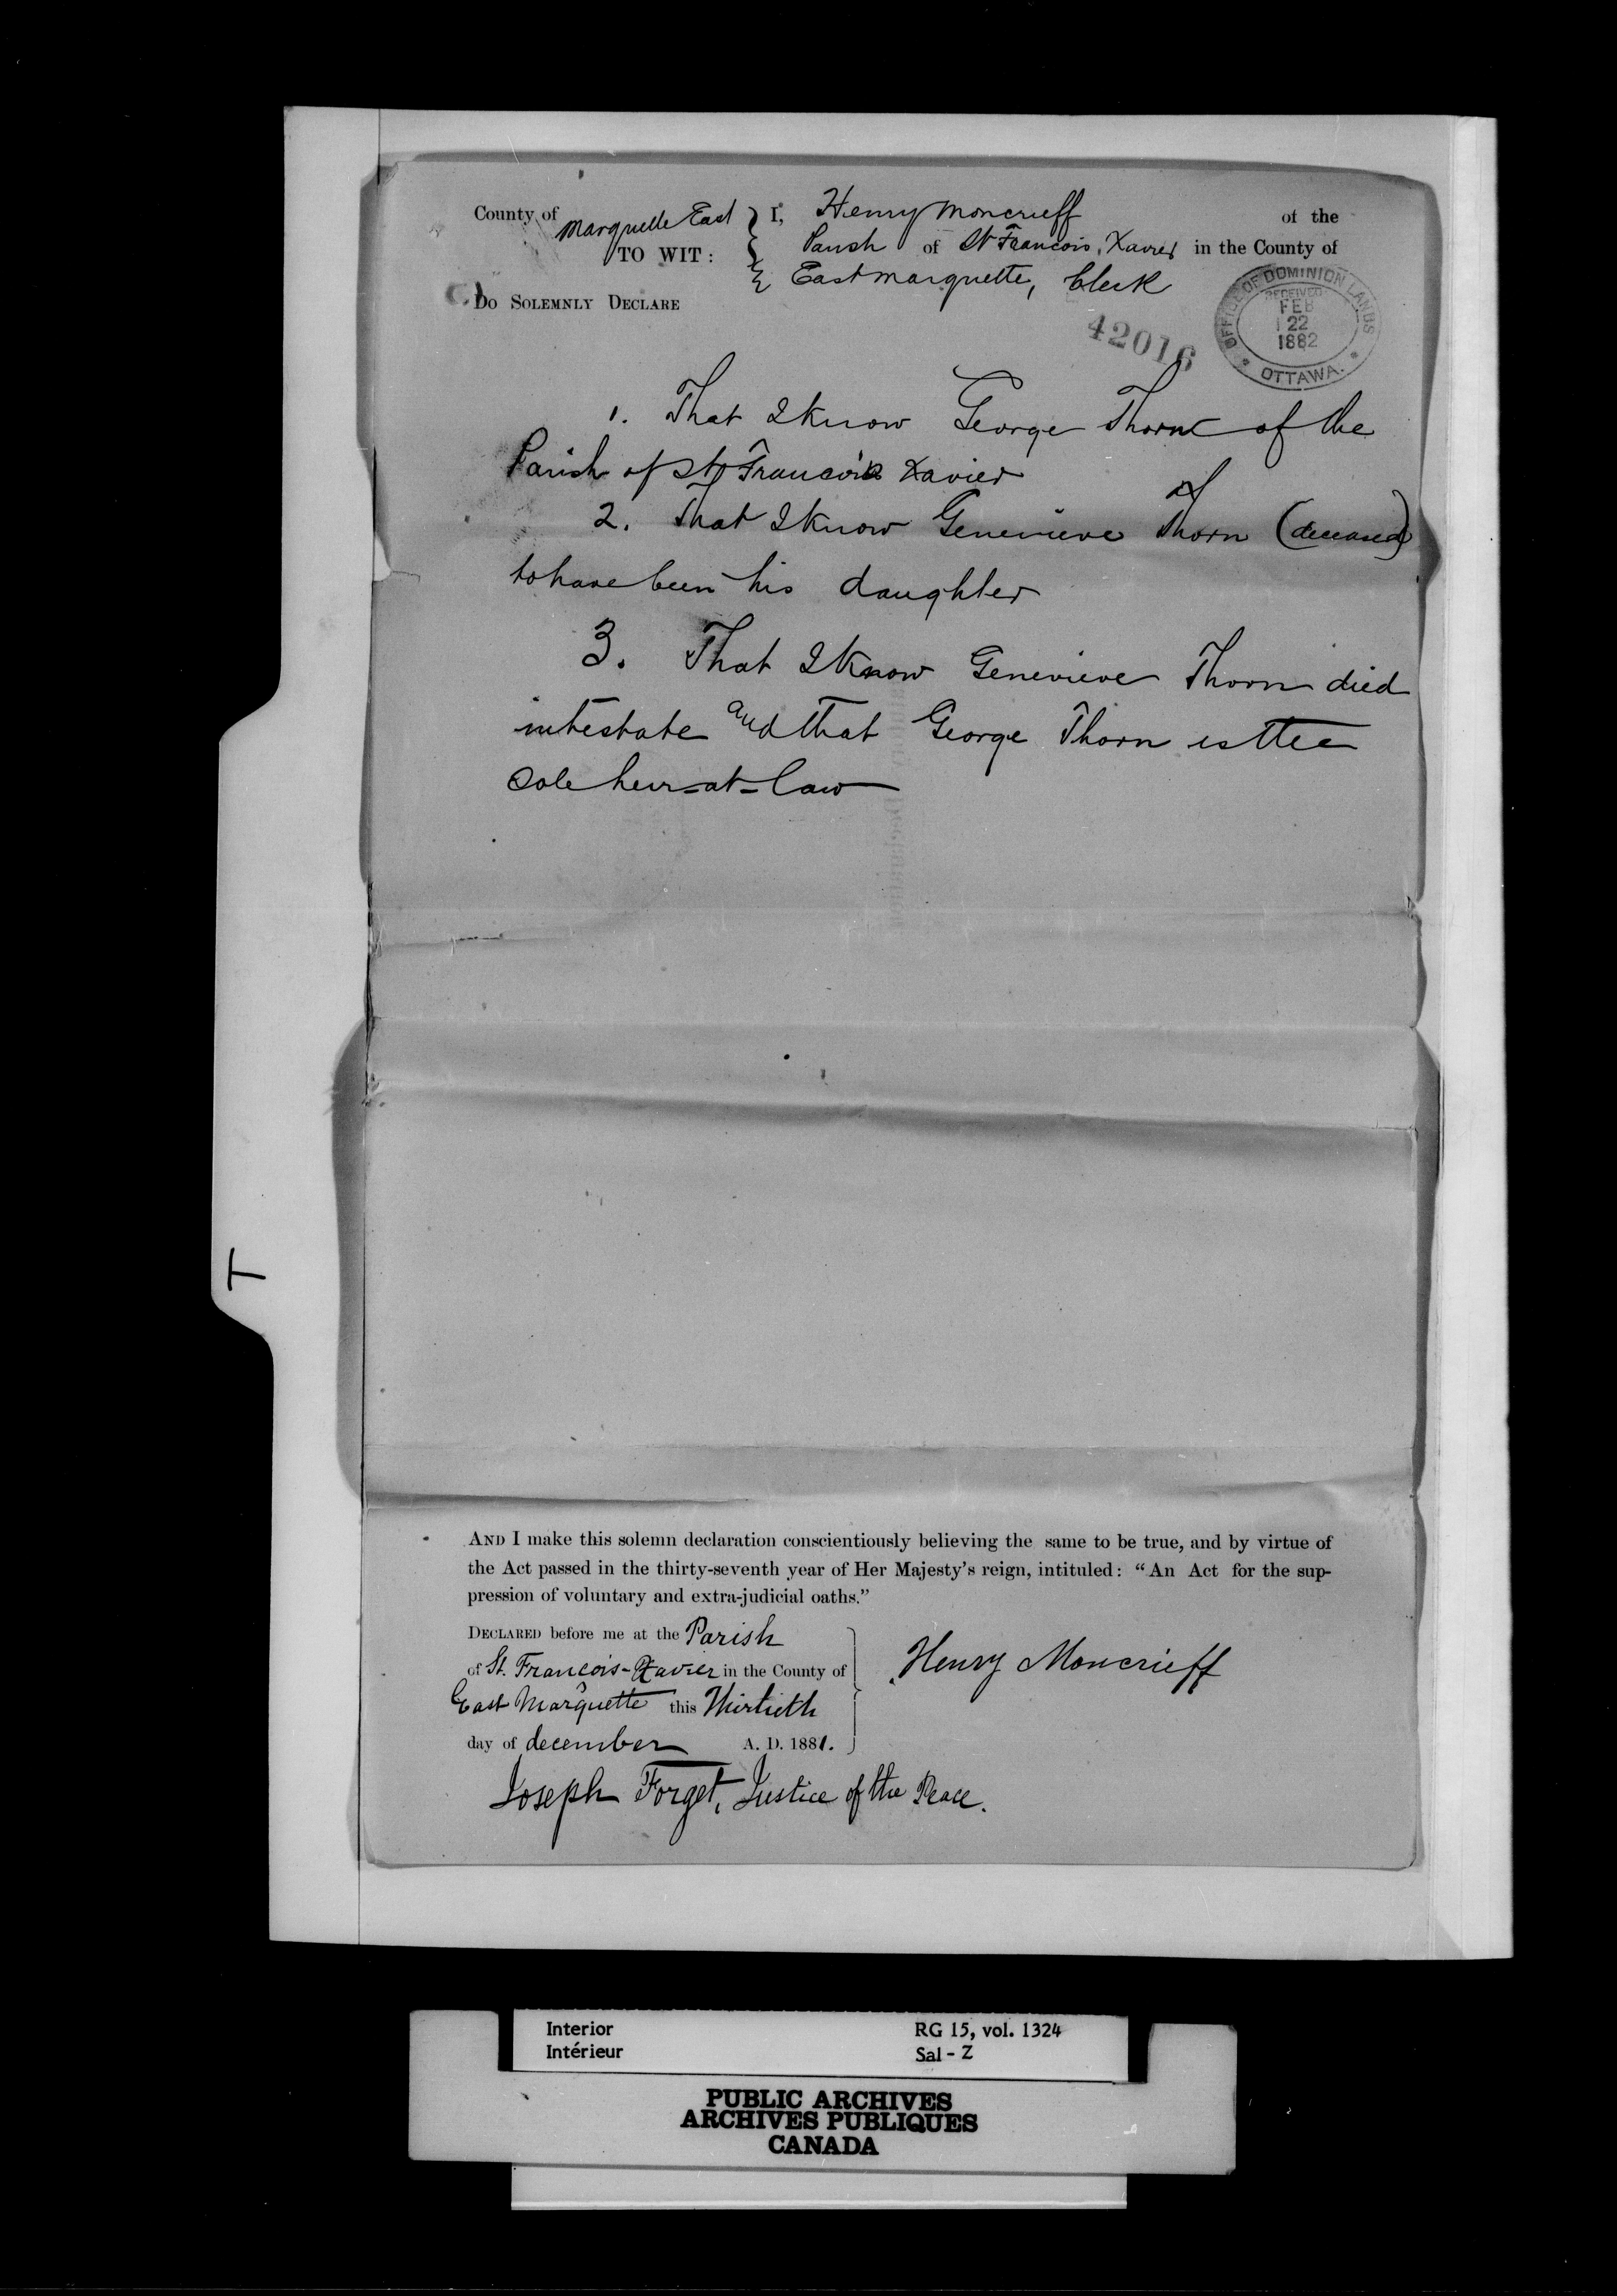 County of Marquette East } I, Henry Moncrieff of the
TO WIT: Parish of St Francois Xavier in the County of
East Marquette, Clerk
Do Solemnly Declare
OFFICE OF DOMINION LANDS
RECEIVED
FEB
22
1882
OTTAWA.
42016
1. That I know George Thorn of the
Parish of St Francois Xavier
2. That I know Genevieve Thorn (deceased)
to have been his daughter
3. That I know Genevieve Thorn died
intestate and that George Thorn is the
Sole heir-at-law
T
And I make this solemn declaration conscientiously believing the same to be true, and by virtue of
the Act passed in the thirty-seventh year of Her Majesty's reign, intituled: "An Act for the sup-
pression of voluntary and extra-judicial oaths."
Declared before me at the Parish
of St. François-Xavier in the County of
East Marquette this Thirtieth
day of december A. D. 1881.
Henry Moncrieff
Joseph Forget, Justice of the Peace.
Interior RG 15, vol. 1324
Intérieur Sal - Z
PUBLIC ARCHIVES
ARCHIVES PUBLIQUES
CANADA